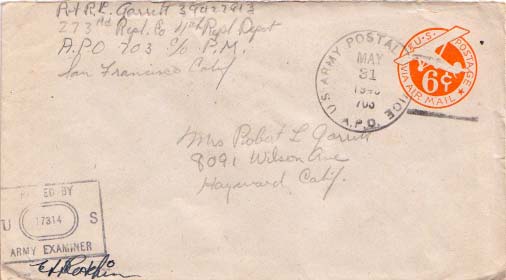 Pvt R.L. Garrett 39027813
273rd Repl. Co 4th Repl. Depot
A.P.O 703 c/o P.M.
San Francisco Calif
U.S. ARMY POSTAL
MAY
31
703
A.P.O.
U.S. POSTAGE
6¢
VIA AIR MAIL
Mrs Robert L Garrett
8091 Wilson Ave
Hayward Calif.
BY
U 17314 S
ARMY EXAMINER